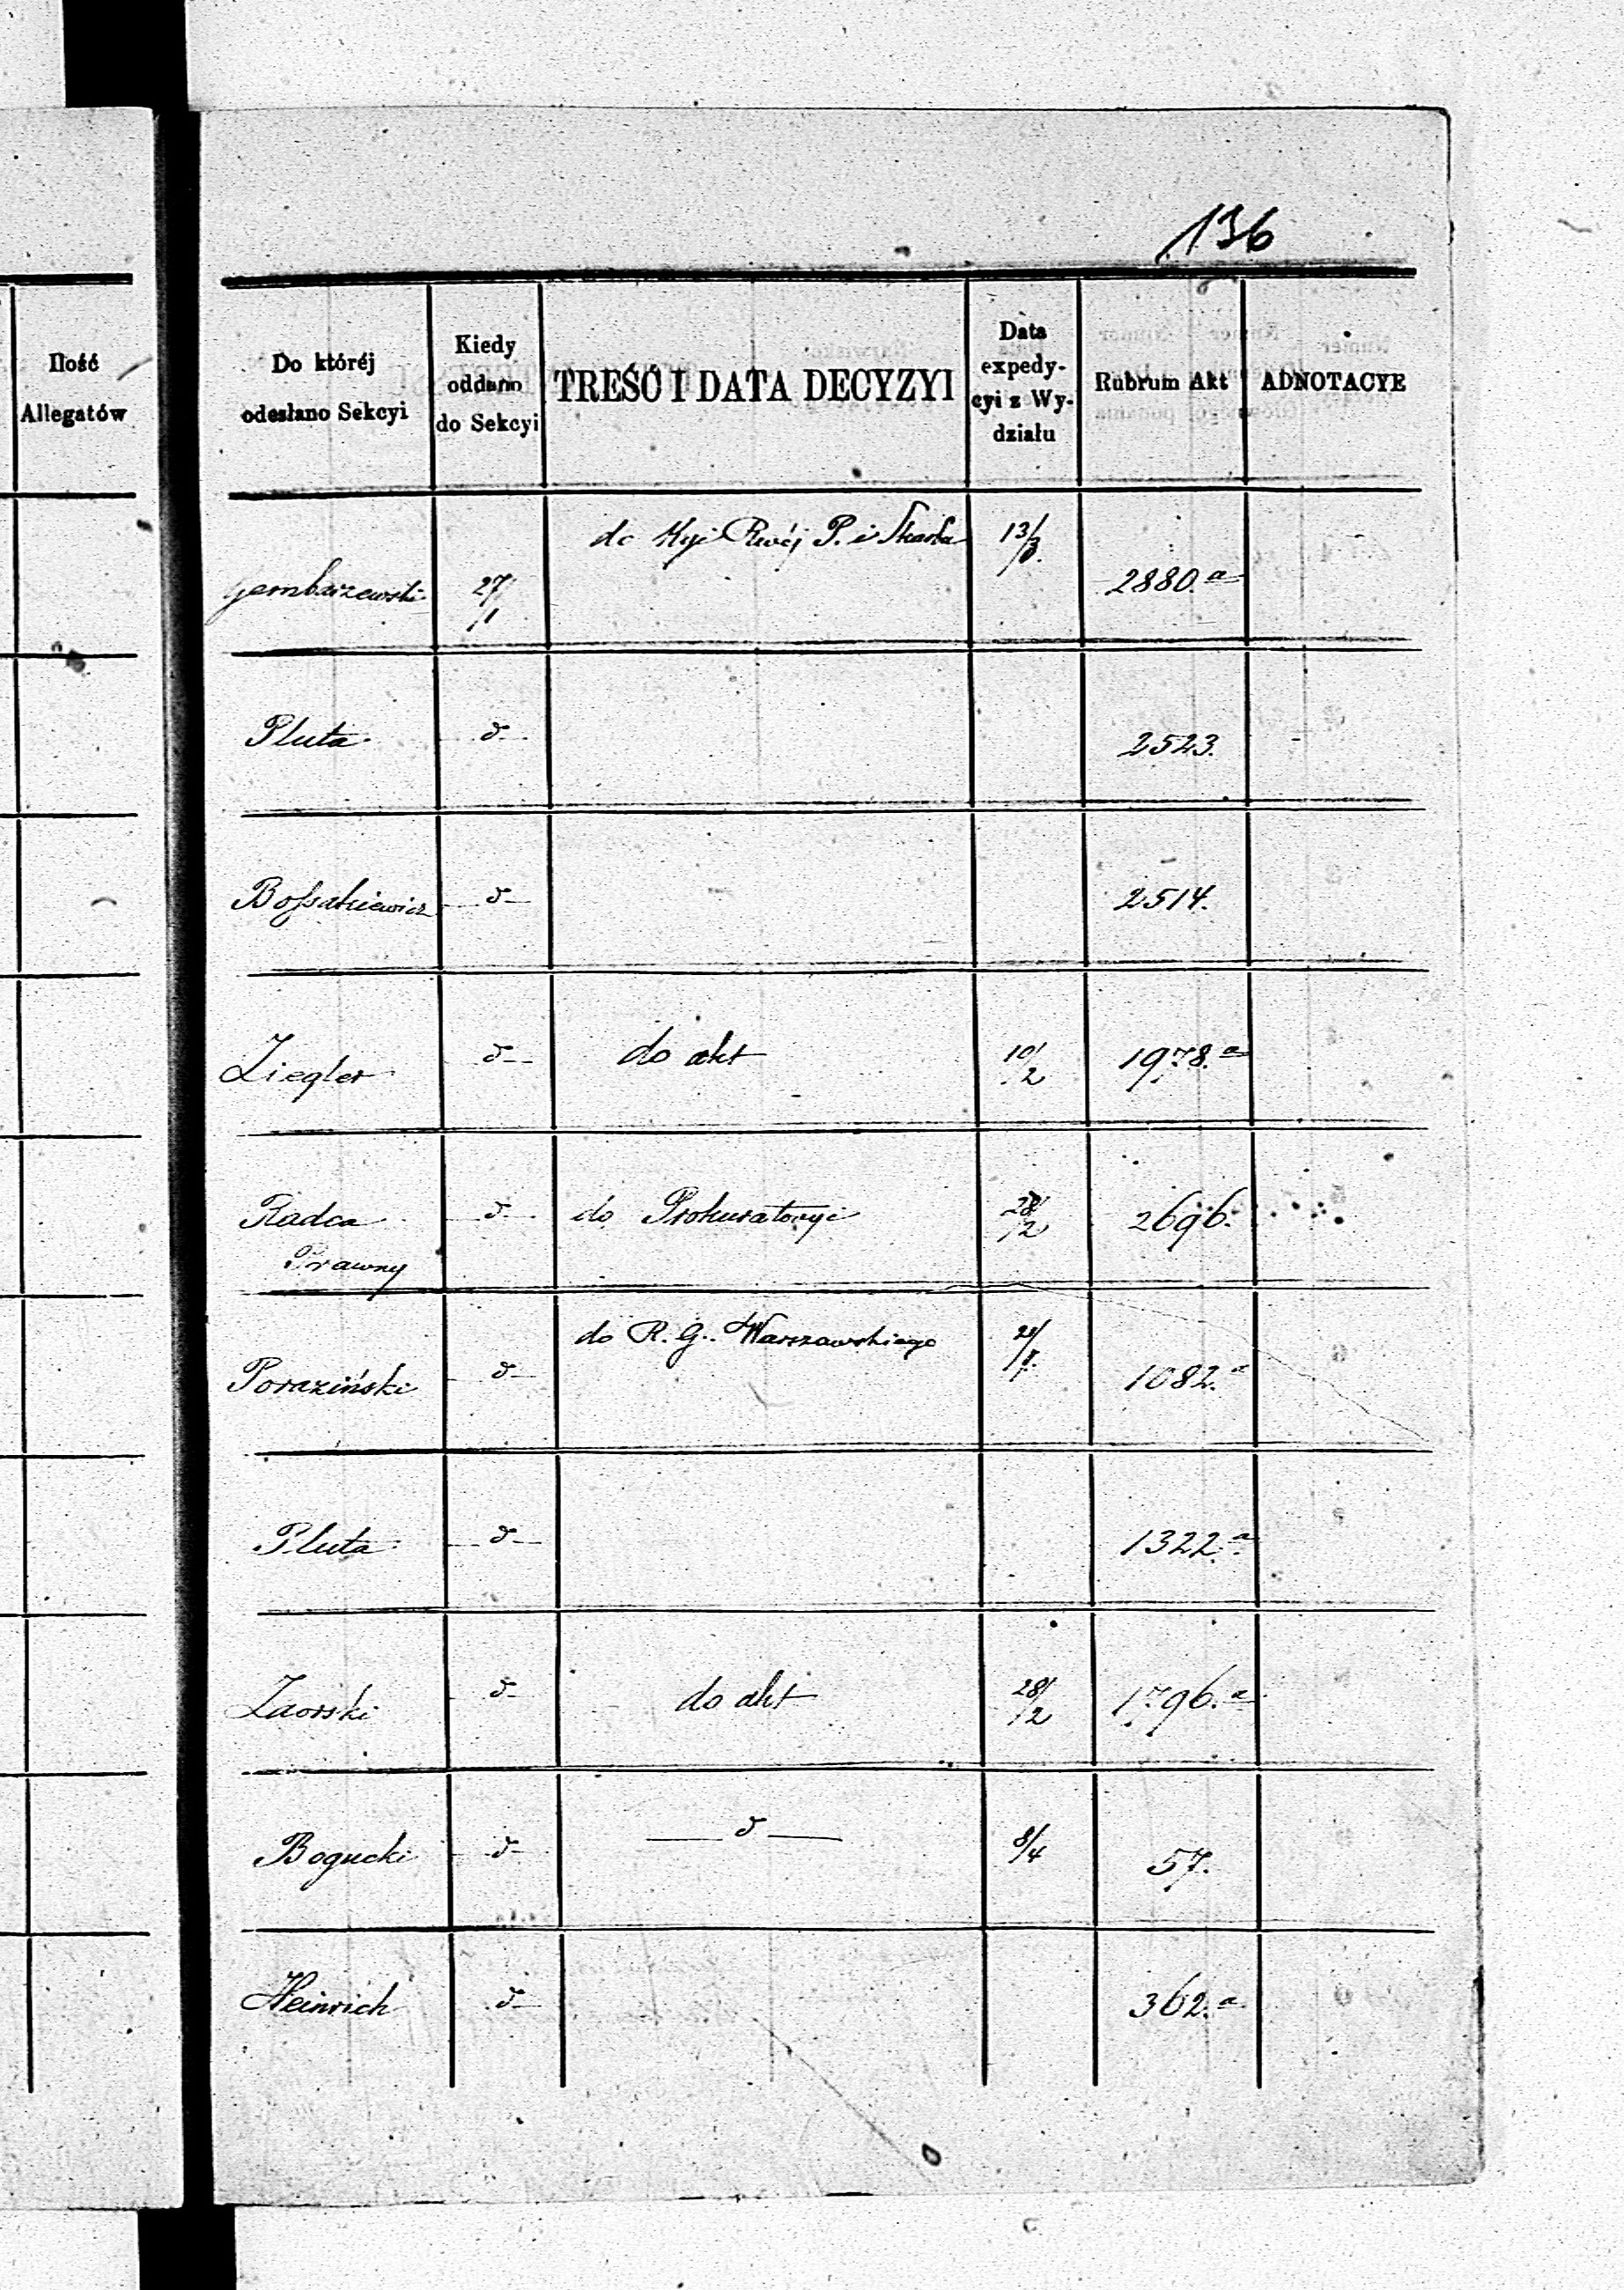 136
Ilość
Allegatów
Do któréj
odesłano Sekcyi
Kiedy
oddano
do Sekcyi
TREŚĆ I DATA DECYZYI
Data
expedy-
cyi z Wy-
działu
Rubrum Akt
ADNOTACYE
Gembarzewski 27/1 do Kyi Rwéj P. i Skarbu 13/3 2880.a
Pluta d 2523.
Bossakiewicz d 2514.
Ziegler d do akt 10/2 1978.a
Radca d do Prokuratoryi 28/2 2696.
Prawny
Poraziński d do R. G. Warszawskiego 1082.a
Pluta d 1322.a
Zaorski d do akt 28/2 1796.a
Bogucki d d 8/4 57.
Heinrich d 362.a